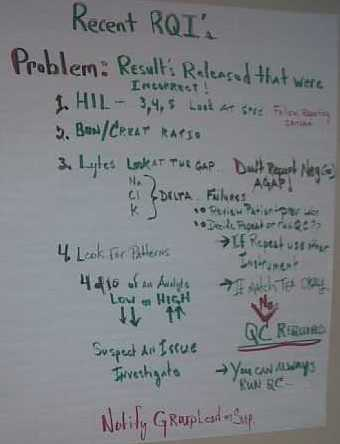 Recent RQI's
Problem: Result's Released that were
Incorrect!
1. HIL - 3,4,5 Look at spec Follow Reporting
2. BUN/CREAT RATIO
3. Lytes Look at the gap. Don't Report Neg (-)
AGAP!
Na
Cl DELTA Failures
K
Review Patient
Decide Repeat or Run QC??
→ If Repeat use other
Instrument
4. Look For Patterns
→ If match Tex Okay
4 of 10 of an Analyte
Low or HIGH
No
↓↓ ↑↑
QC Required
Suspect An Issue
Investigate
→ You can always
RUN QC
Notify Group Lead or Sup.